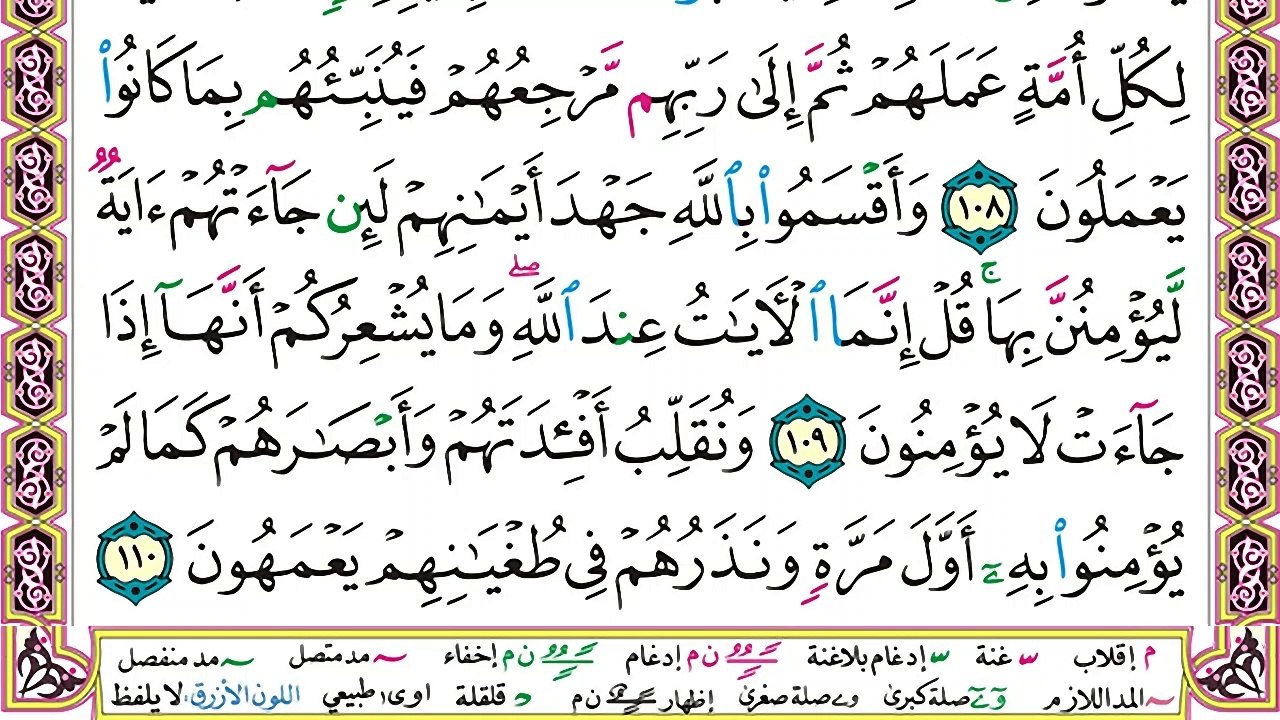 لِكُلِّ أُمَّةٍ عَمَلَهُمْ ثُمَّ إِلَىٰ رَبِّهِم مَّرْجِعُهُمْ فَيُنَبِّئُهُم بِمَا كَانُوا۟
يَعْمَلُونَ ١٠٨ وَأَقْسَمُوا۟ بِٱللَّهِ جَهْدَ أَيْمَـٰنِهِمْ لَئِن جَآءَتْهُمْ ءَايَةٌ
لَّيُؤْمِنُنَّ بِهَا ۚ قُلْ إِنَّمَا ٱلْـَٔايَـٰتُ عِندَ ٱللَّهِ ۖ وَمَا يُشْعِرُكُمْ أَنَّهَآ إِذَا
جَآءَتْ لَا يُؤْمِنُونَ ١٠٩ وَنُقَلِّبُ أَفْـِٔدَتَهُمْ وَأَبْصَـٰرَهُمْ كَمَا لَمْ
يُؤْمِنُوا۟ بِهِۦٓ أَوَّلَ مَرَّةٍ وَنَذَرُهُمْ فِى طُغْيَـٰنِهِمْ يَعْمَهُونَ ١١٠
م إقلاب غنة إدغام بلاغنة ن م إدغام ن م إخفاء مد متصل مد منفصل
المد اللازم صلة كبرى صلة صغرى إظهار ن م قلقلة اوى طبيعي اللون الأزرق: لا يلفظ